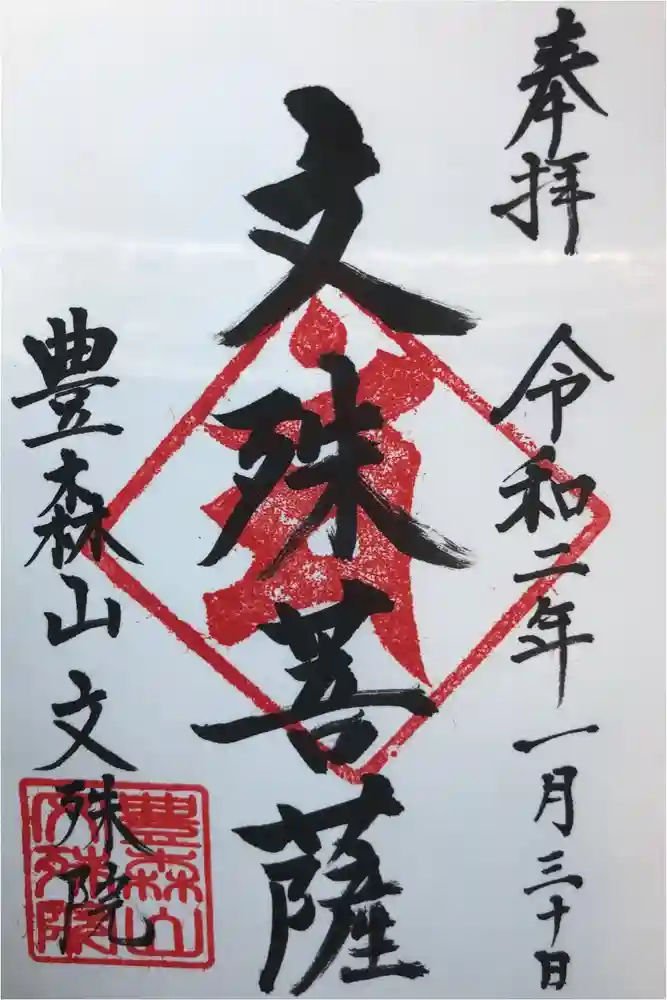 奉拝 令和二年一月三十日
文殊菩薩
豊森山文殊院
豊森山
文殊院